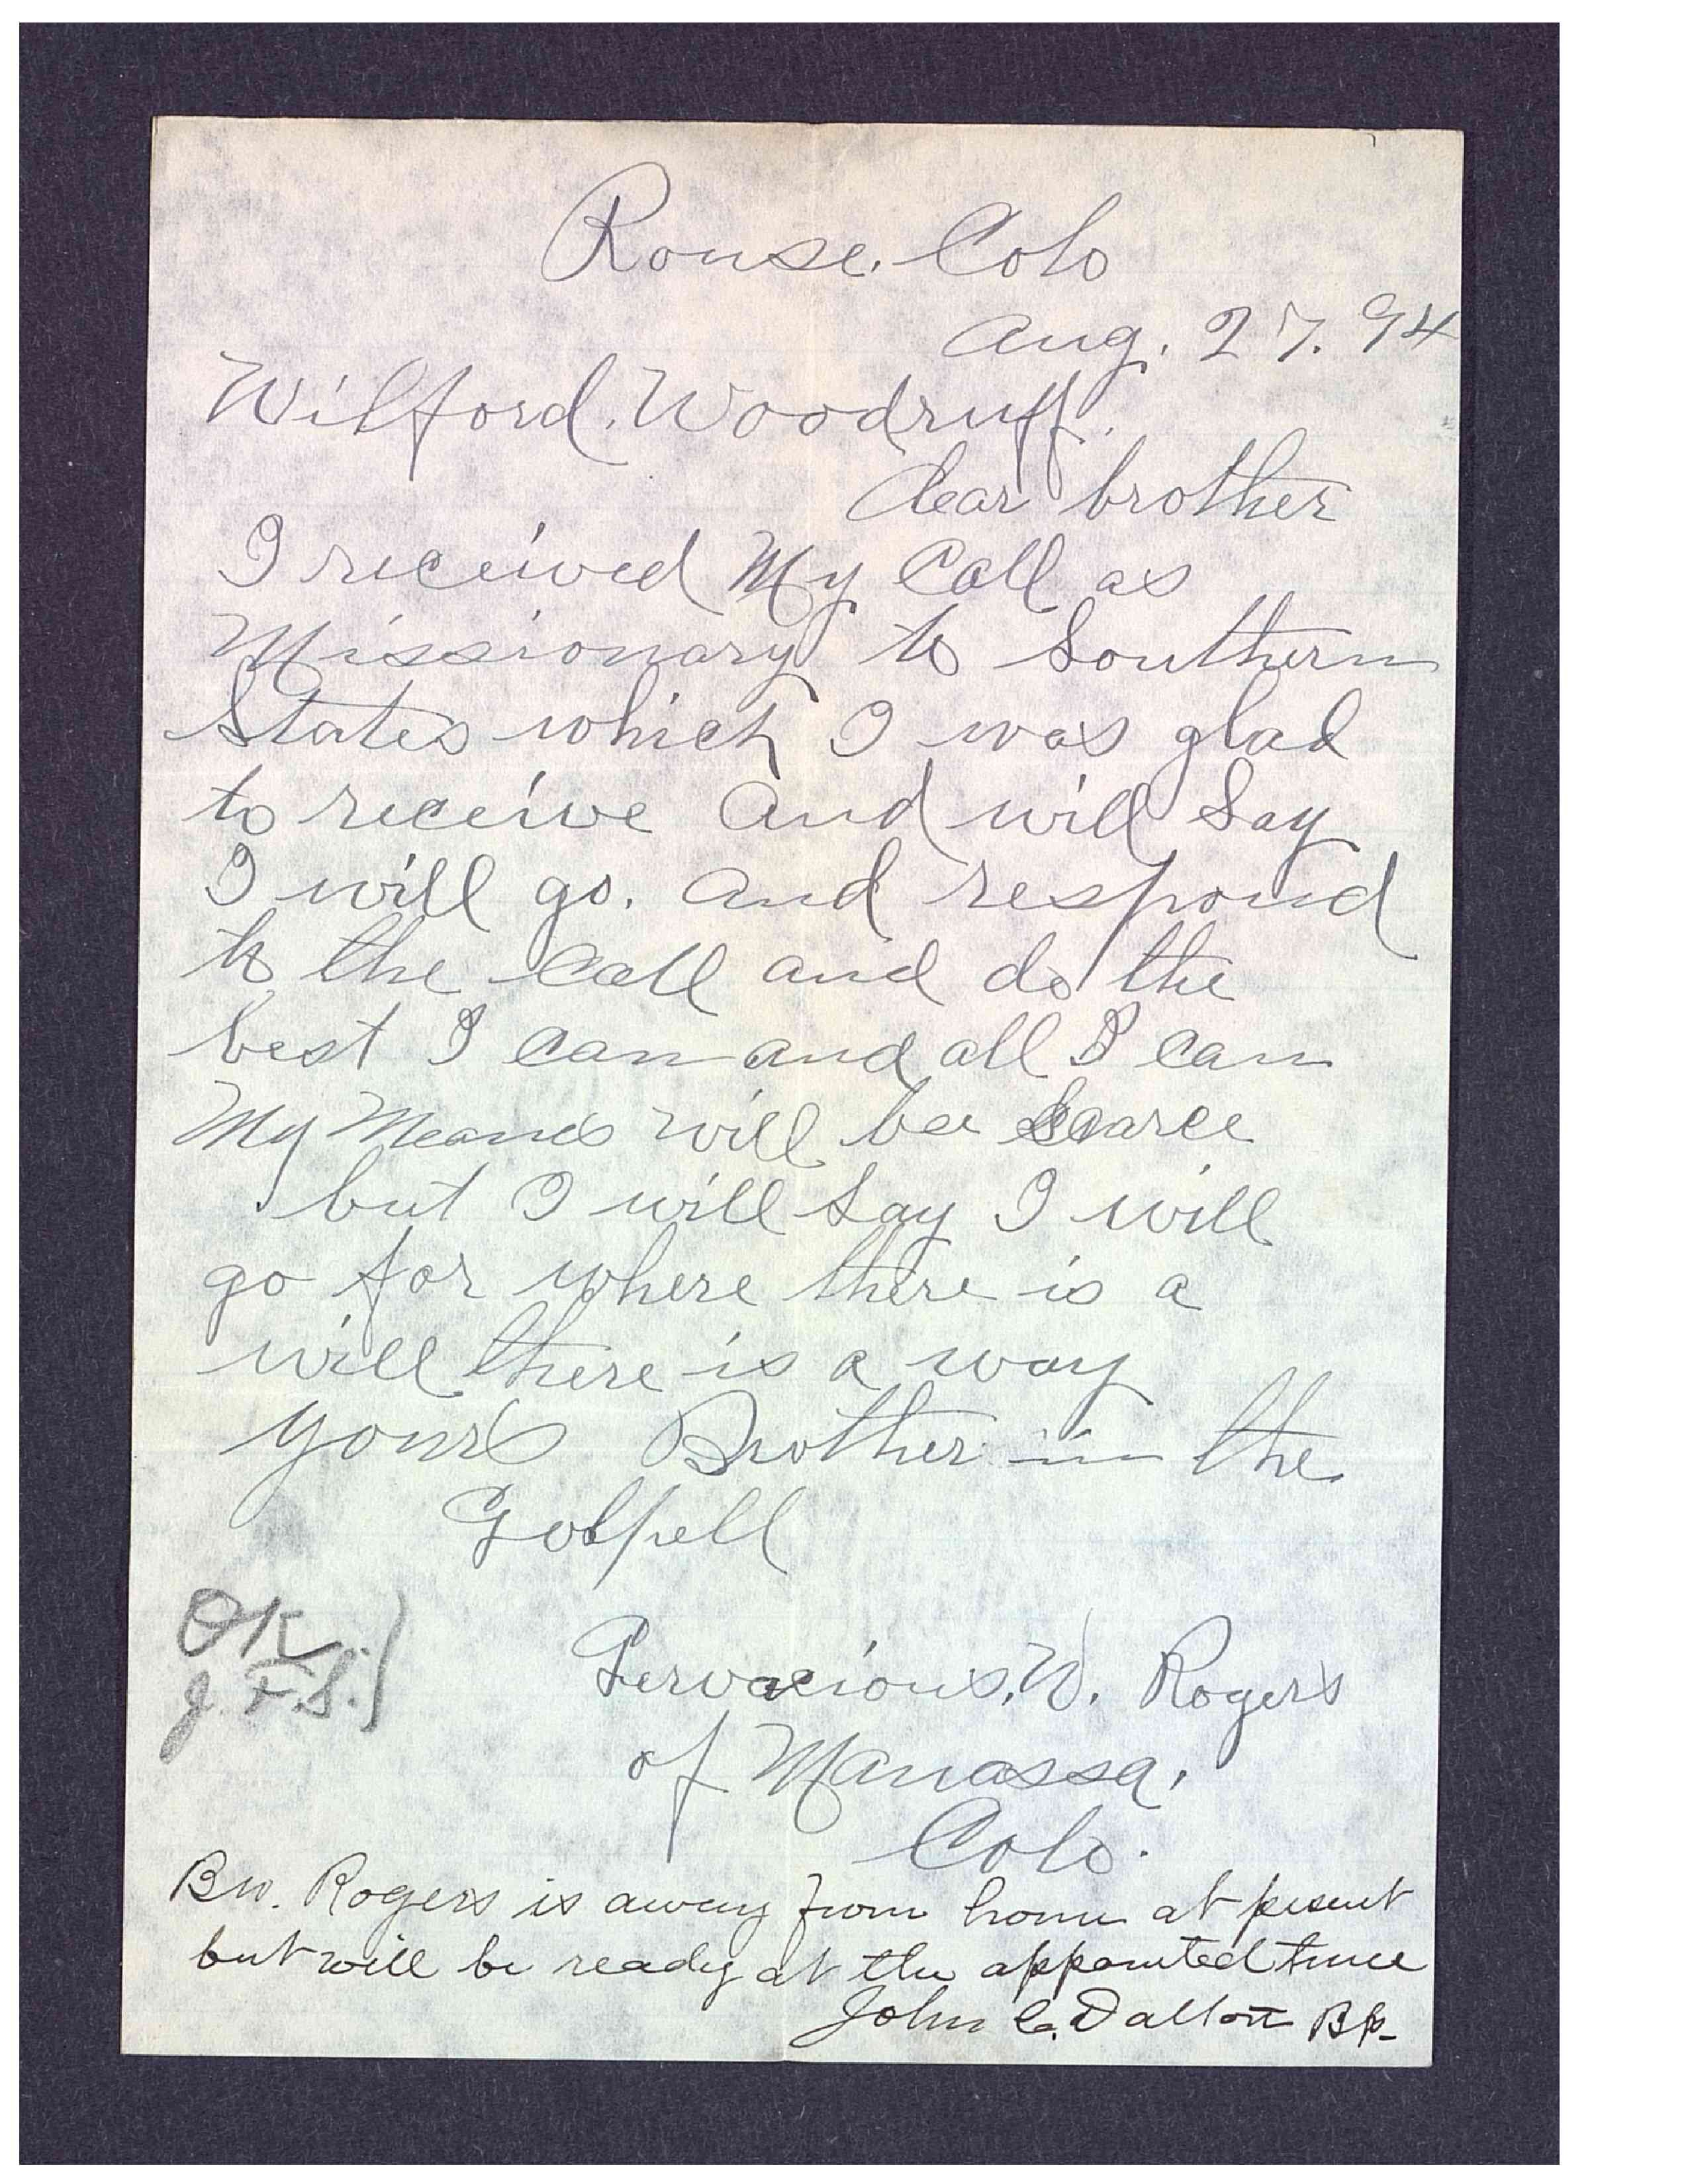 Rouse. Colo
Aug. 27. 94
Wilford. Woodruff.
dear brother
I received My Call as
Missionary to Southern
States which I was glad
to receive and will Say
I will go. and respond
to the Call and do the
best I can and all I can
My Means will be Scarce
but I will Say I will
go for where there is a
will there is a way
yours Brother in the
Gospell
OK.
J. F. S.
Gervacious. W. Rogers
of Manassa.
Colo.
Bro. Rogers is away from home at present
but will be ready at the appointed time
John C. Dalton Bp-